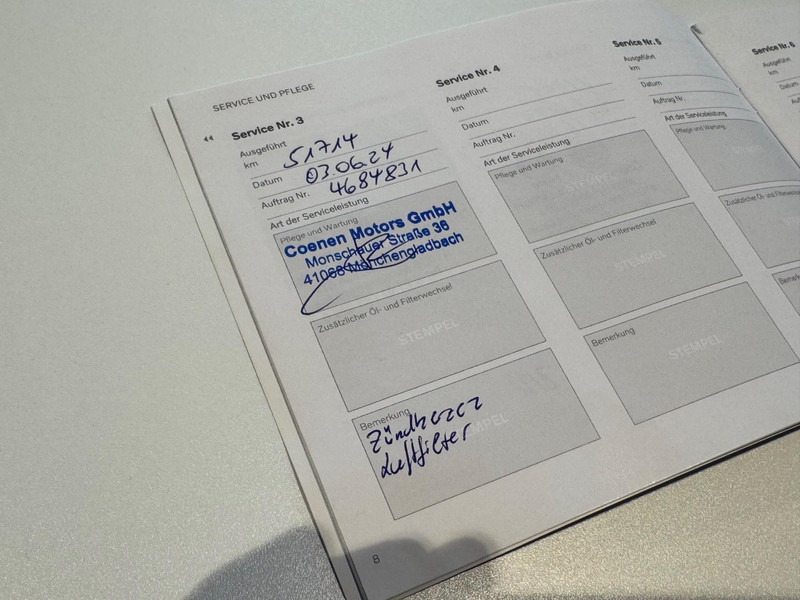 SERVICE UND PFLEGE
Service Nr. 3
Ausgeführt
km 51714
Datum 03.06.24
Auftrag Nr. 4684831
Art der Serviceleistung
Pflege und Wartung
Coenen Motors GmbH
Monschauer Straße 36
41068 Mönchengladbach
Zusätzlicher Öl- und Filterwechsel
STEMPEL
Bemerkung
Zündkerzen
Luftfilter
STEMPEL
8
Service Nr. 4
Ausgeführt
km
Datum
Auftrag Nr.
Art der Serviceleistung
Pflege und Wartung
STEMPEL
Zusätzlicher Öl- und Filterwechsel
STEMPEL
Bemerkung
STEMPEL
Service Nr. 5
Ausgeführt
km
Datum
Auftrag Nr.
Art der Serviceleistung
Pflege und Wartung
Zusätzlicher Öl- und
Service Nr. 6
Ausgeführt
km